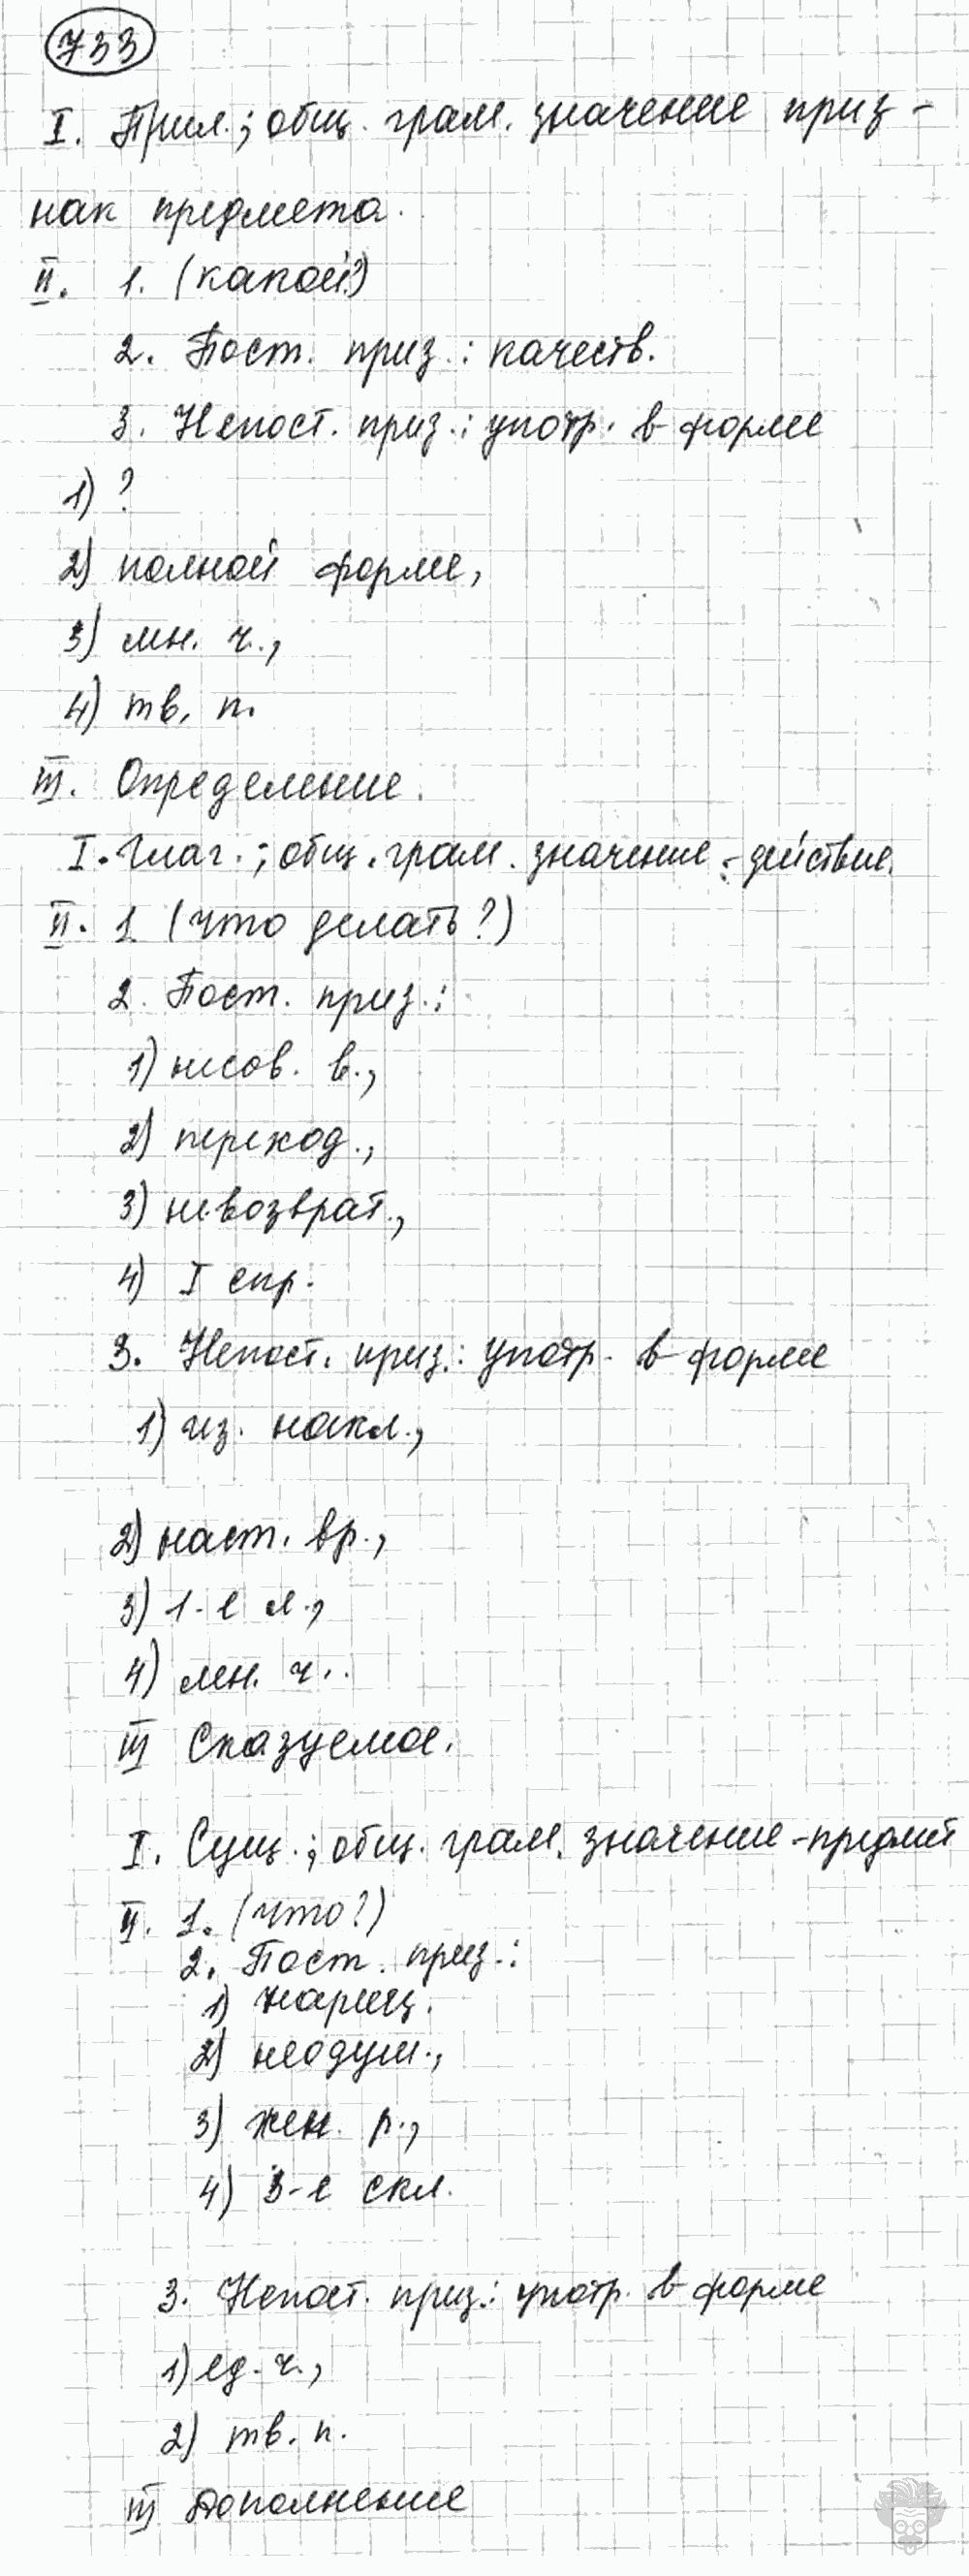 733
I. Прил.; общ. грам. значение приз-
нак предмета.
II. 1. (какой?)
2. Пост. приз.: качеств.
3. Непост. приз.: употр. в форме
1) ?
2) полной форме,
3) мн. ч.,
4) тв. п.
III. Определение.
I. Глаг.; общ. грам. значение - действие.
II. 1 (что делать?)
2. Пост. приз.:
1) несов. в.,
2) переход.,
3) невозврат.,
4) I спр.
3. Непост. приз.: употр. в форме
1) из. накл.,
2) наст. вр.,
3) 1-е л.,
4) мн. ч..
III Сказуемое.
I. Сущ.; общ. грам. значение - предмет
II. 1. (что?)
2. Пост. приз.:
1) нариц.
2) неодуш.,
3) жен. р.,
4) 3-е скл.
3. Непост. приз.: употр. в форме
1) ед. ч.,
2) тв. п.
III Дополнение